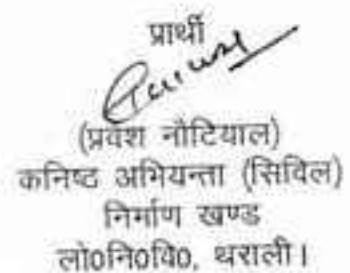 प्रार्थी
(प्रवेश नौटियाल)
कनिष्ठ अभियन्ता (सिविल)
निर्माण खण्ड
लो०नि०वि०, थराली।